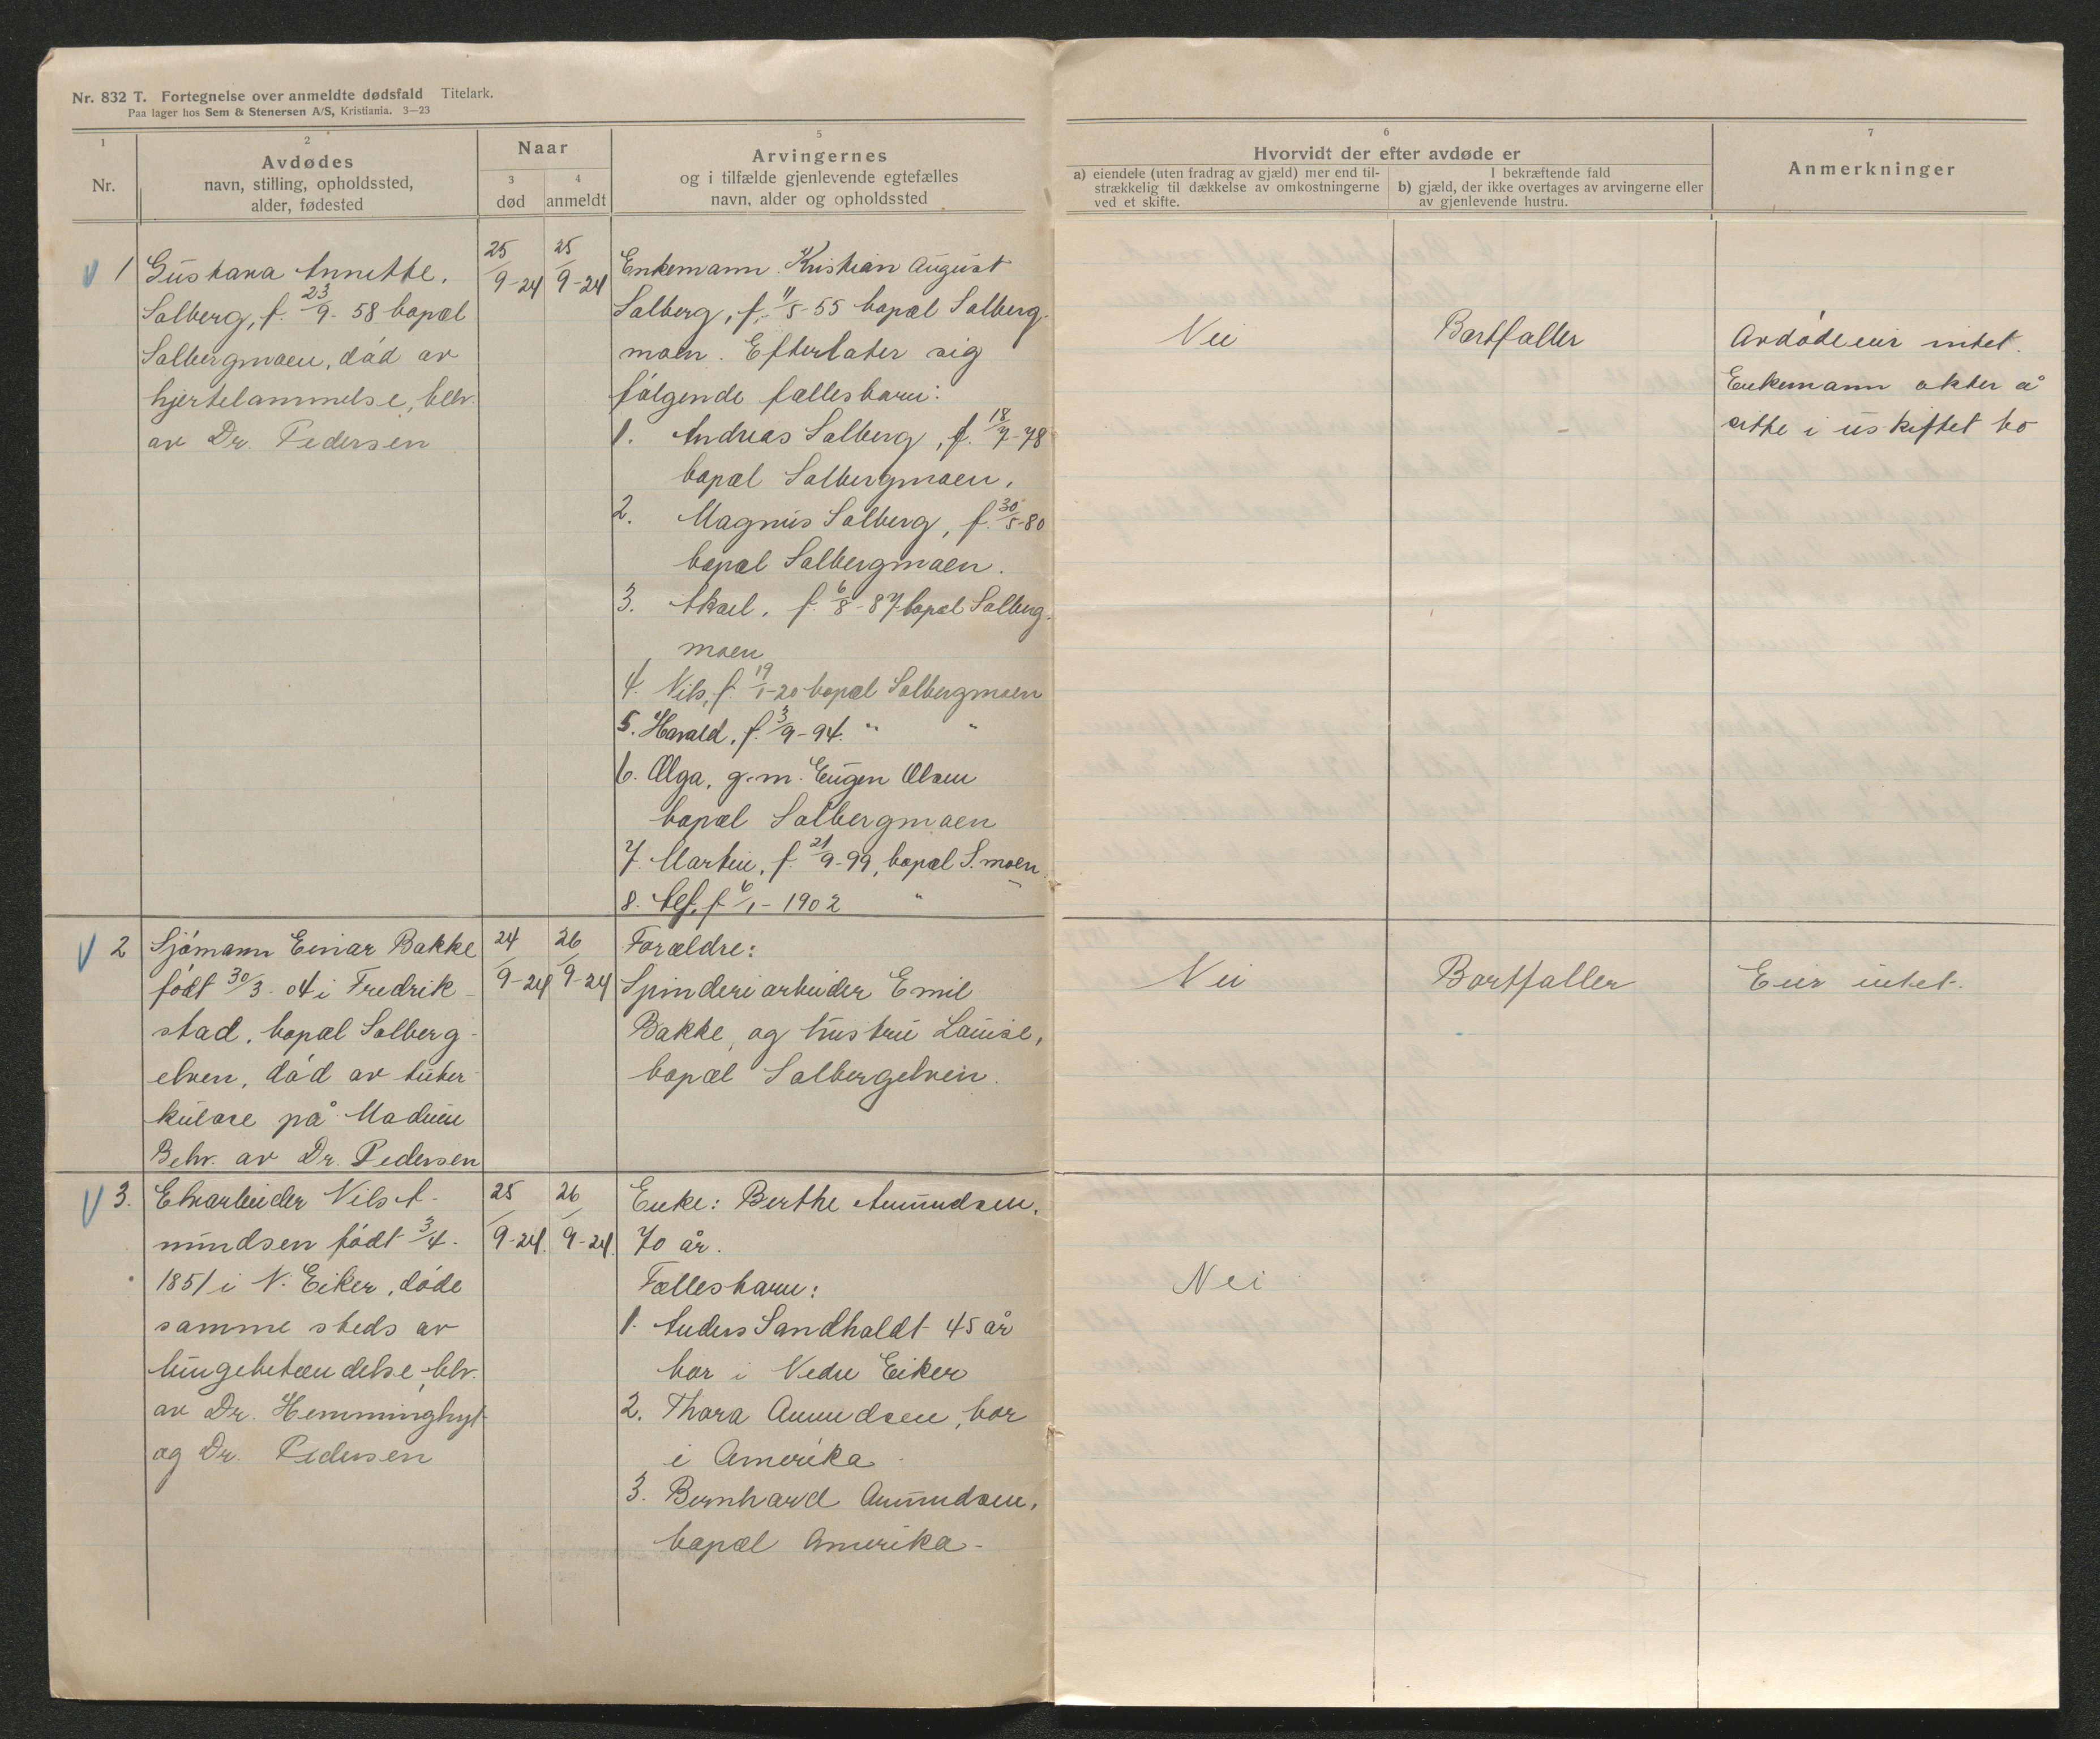 Nr. 832 T. Fortegnelse over anmeldte dødsfald Titelark.
Paa lager hos Sem & Stenersen A/S, Kristiania. 3—23
1
Nr.
2
Avdødes
navn, stilling, opholdssted,
alder, fødested
Naar
3
død
4
anmeldt
5
Arvingernes
og i tilfælde gjenlevende egtefælles
navn, alder og opholdssted
6
Hvorvidt der efter avdøde er
a) eiendele (uten fradrag av gjæld) mer end til-
strækkelig til dækkelse av omkostningerne
ved et skifte.
I bekræftende fald
b) gjæld, der ikke overtages av arvingerne eller
av gjenlevende hustru.
7
Anmerkninger
1
Gustava Annette,
Solberg, f. 23/9-58 bopæl
Solbergmoen, død av
hjertelammelse, beh.
av Dr. Pedersen
25/9-24
25/9-24
Enkemann Kristian August
Solberg, f. 11/5-55 bopæl Solberg-
moen. Efterlater sig
følgende fællesbarn:
1. Andreas Solberg, f. 18/7-78
bopæl Solbergmoen,
2. Magnus Solberg, f. 30/5-80
bopæl Solbergmoen.
3. Aksel, f. 6/8-87 bopæl Solberg-
moen
4. Nils, f. 19/1-20 bopæl Solbergmoen
5. Harald, f. 3/9-94. " "
6. Olga, g.m. Eugen Olsen
bopæl Solbergmoen
7. Martin, f. 21/9-99, bopæl S.moen
8. f. 6/1-1902 "
Nei
Bortfaller
Avdøde eier intet.
Enkemann akter å
sitte i uskiftet bo
2
Sjømann Einar Bakke
født 30/3-04 i Fredrik-
stad, bopæl Solberg-
elven, død av tuber-
kulose på Modum
Behr. av Dr. Pedersen
24/9-24
26/9-24
Forældre:
Spinderiarbeider Emil
Bakke, og hustru Louise,
bopæl Solbergelven.
Nei
Bortfaller
Eier intet.
3.
Elvarbeider Nils A-
mundsen født 3/4-
1851 i N. Eiker, døde
samme steds av
lungebetændelse, beh.
av Dr.
og Dr. Pedersen
25/9-24.
26/9-24.
Enke: Berthe Amundsen,
70 år.
Fællesbarn:
1. Anders Sandholdt 45 år
bor i Nedre Eiker
2. Thora Amundsen, bor
i Amerika
3. Bernhard Amundsen,
bopæl Amerika-
Nei